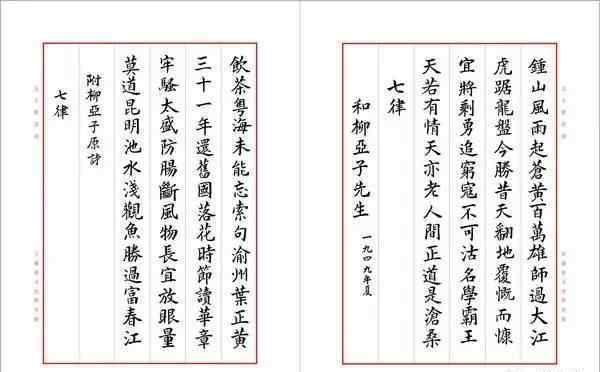 鍾山風雨起蒼黃百萬雄師過大江
虎踞龍盤今勝昔天翻地覆慨而慷
宜將剩勇追窮寇不可沽名學霸王
天若有情天亦老人間正道是滄桑
七律
和柳亞子先生 一九四九年夏
飲茶粵海未能忘索句渝州葉正黃
三十一年還舊國落花時節讀華章
牢騷太盛防腸斷風物長宜放眼量
莫道昆明池水淺觀魚勝過富春江
附柳亞子原詩
七律